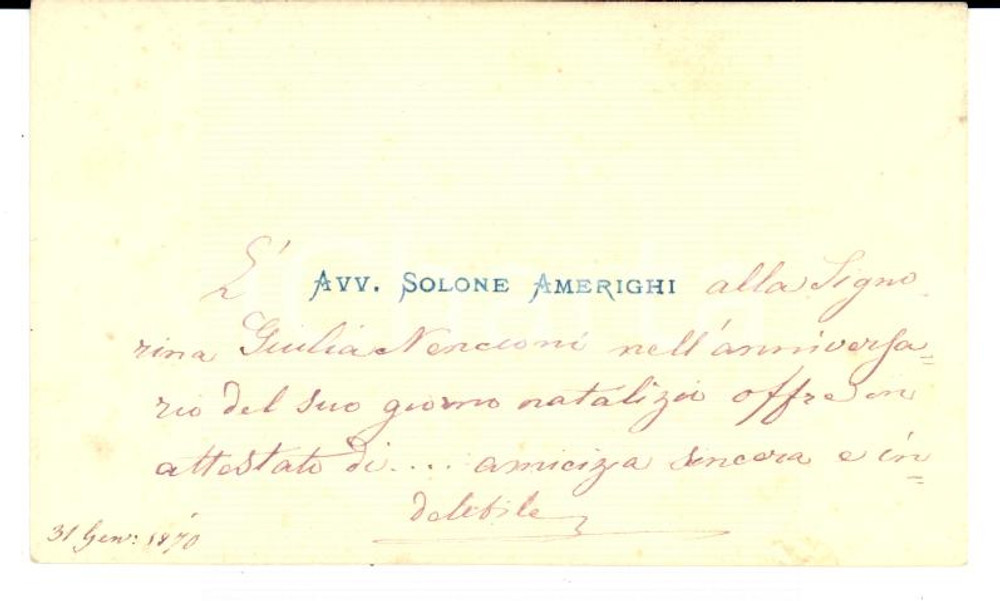 L' AVV. SOLONE AMERIGHI alla Signo
rina Giulia Nencioni nell'anniversa=
rio del suo giorno natalizio offre in
attestato di.... amicizia sincera e in=
delebile
31 Gen: 1870